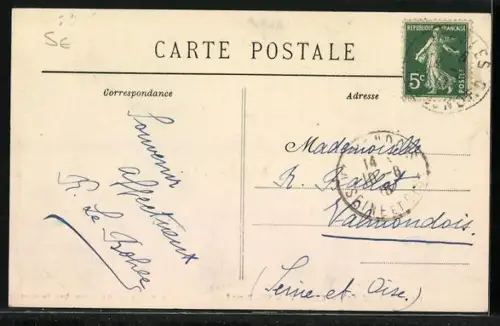 5E
CARTE POSTALE
RÉPUBLIQUE FRANÇAISE
5c
POSTES
Correspondance
Adresse
Souvenir
affectueux
R. Le
Mademoiselle
R.
Valmondois
(Seine-et-Oise.)
14
SEINE ET